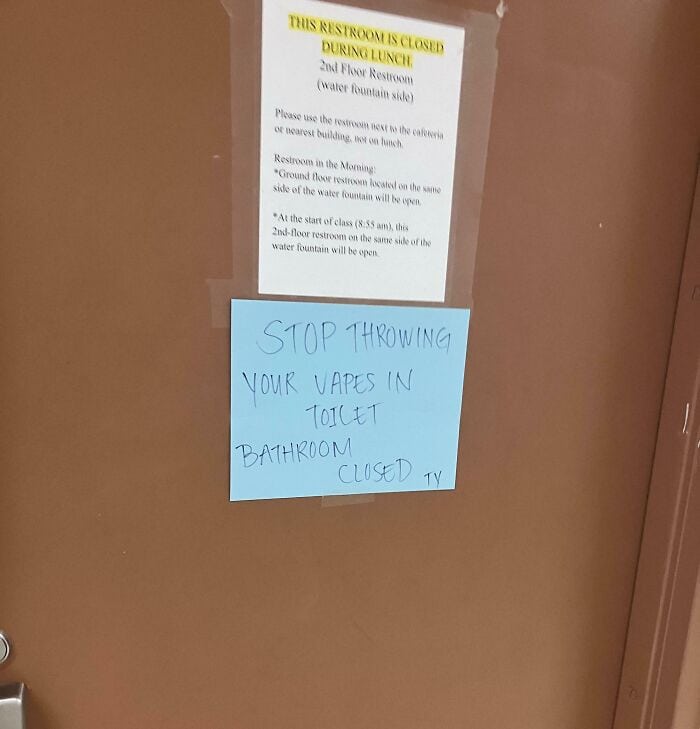 THIS RESTROOM IS CLOSED
DURING LUNCH.
2nd Floor Restroom
(water fountain side)
Please use the restroom next to the cafeteria
or nearest building, not on lunch.
Restroom in the Morning:
*Ground floor restroom located on the same
side of the water fountain will be open.
*At the start of class (8:55 am), this
2nd-floor restroom on the same side of the
water fountain will be open.
STOP THROWING
YOUR VAPES IN
TOILET
BATHROOM
CLOSED TY